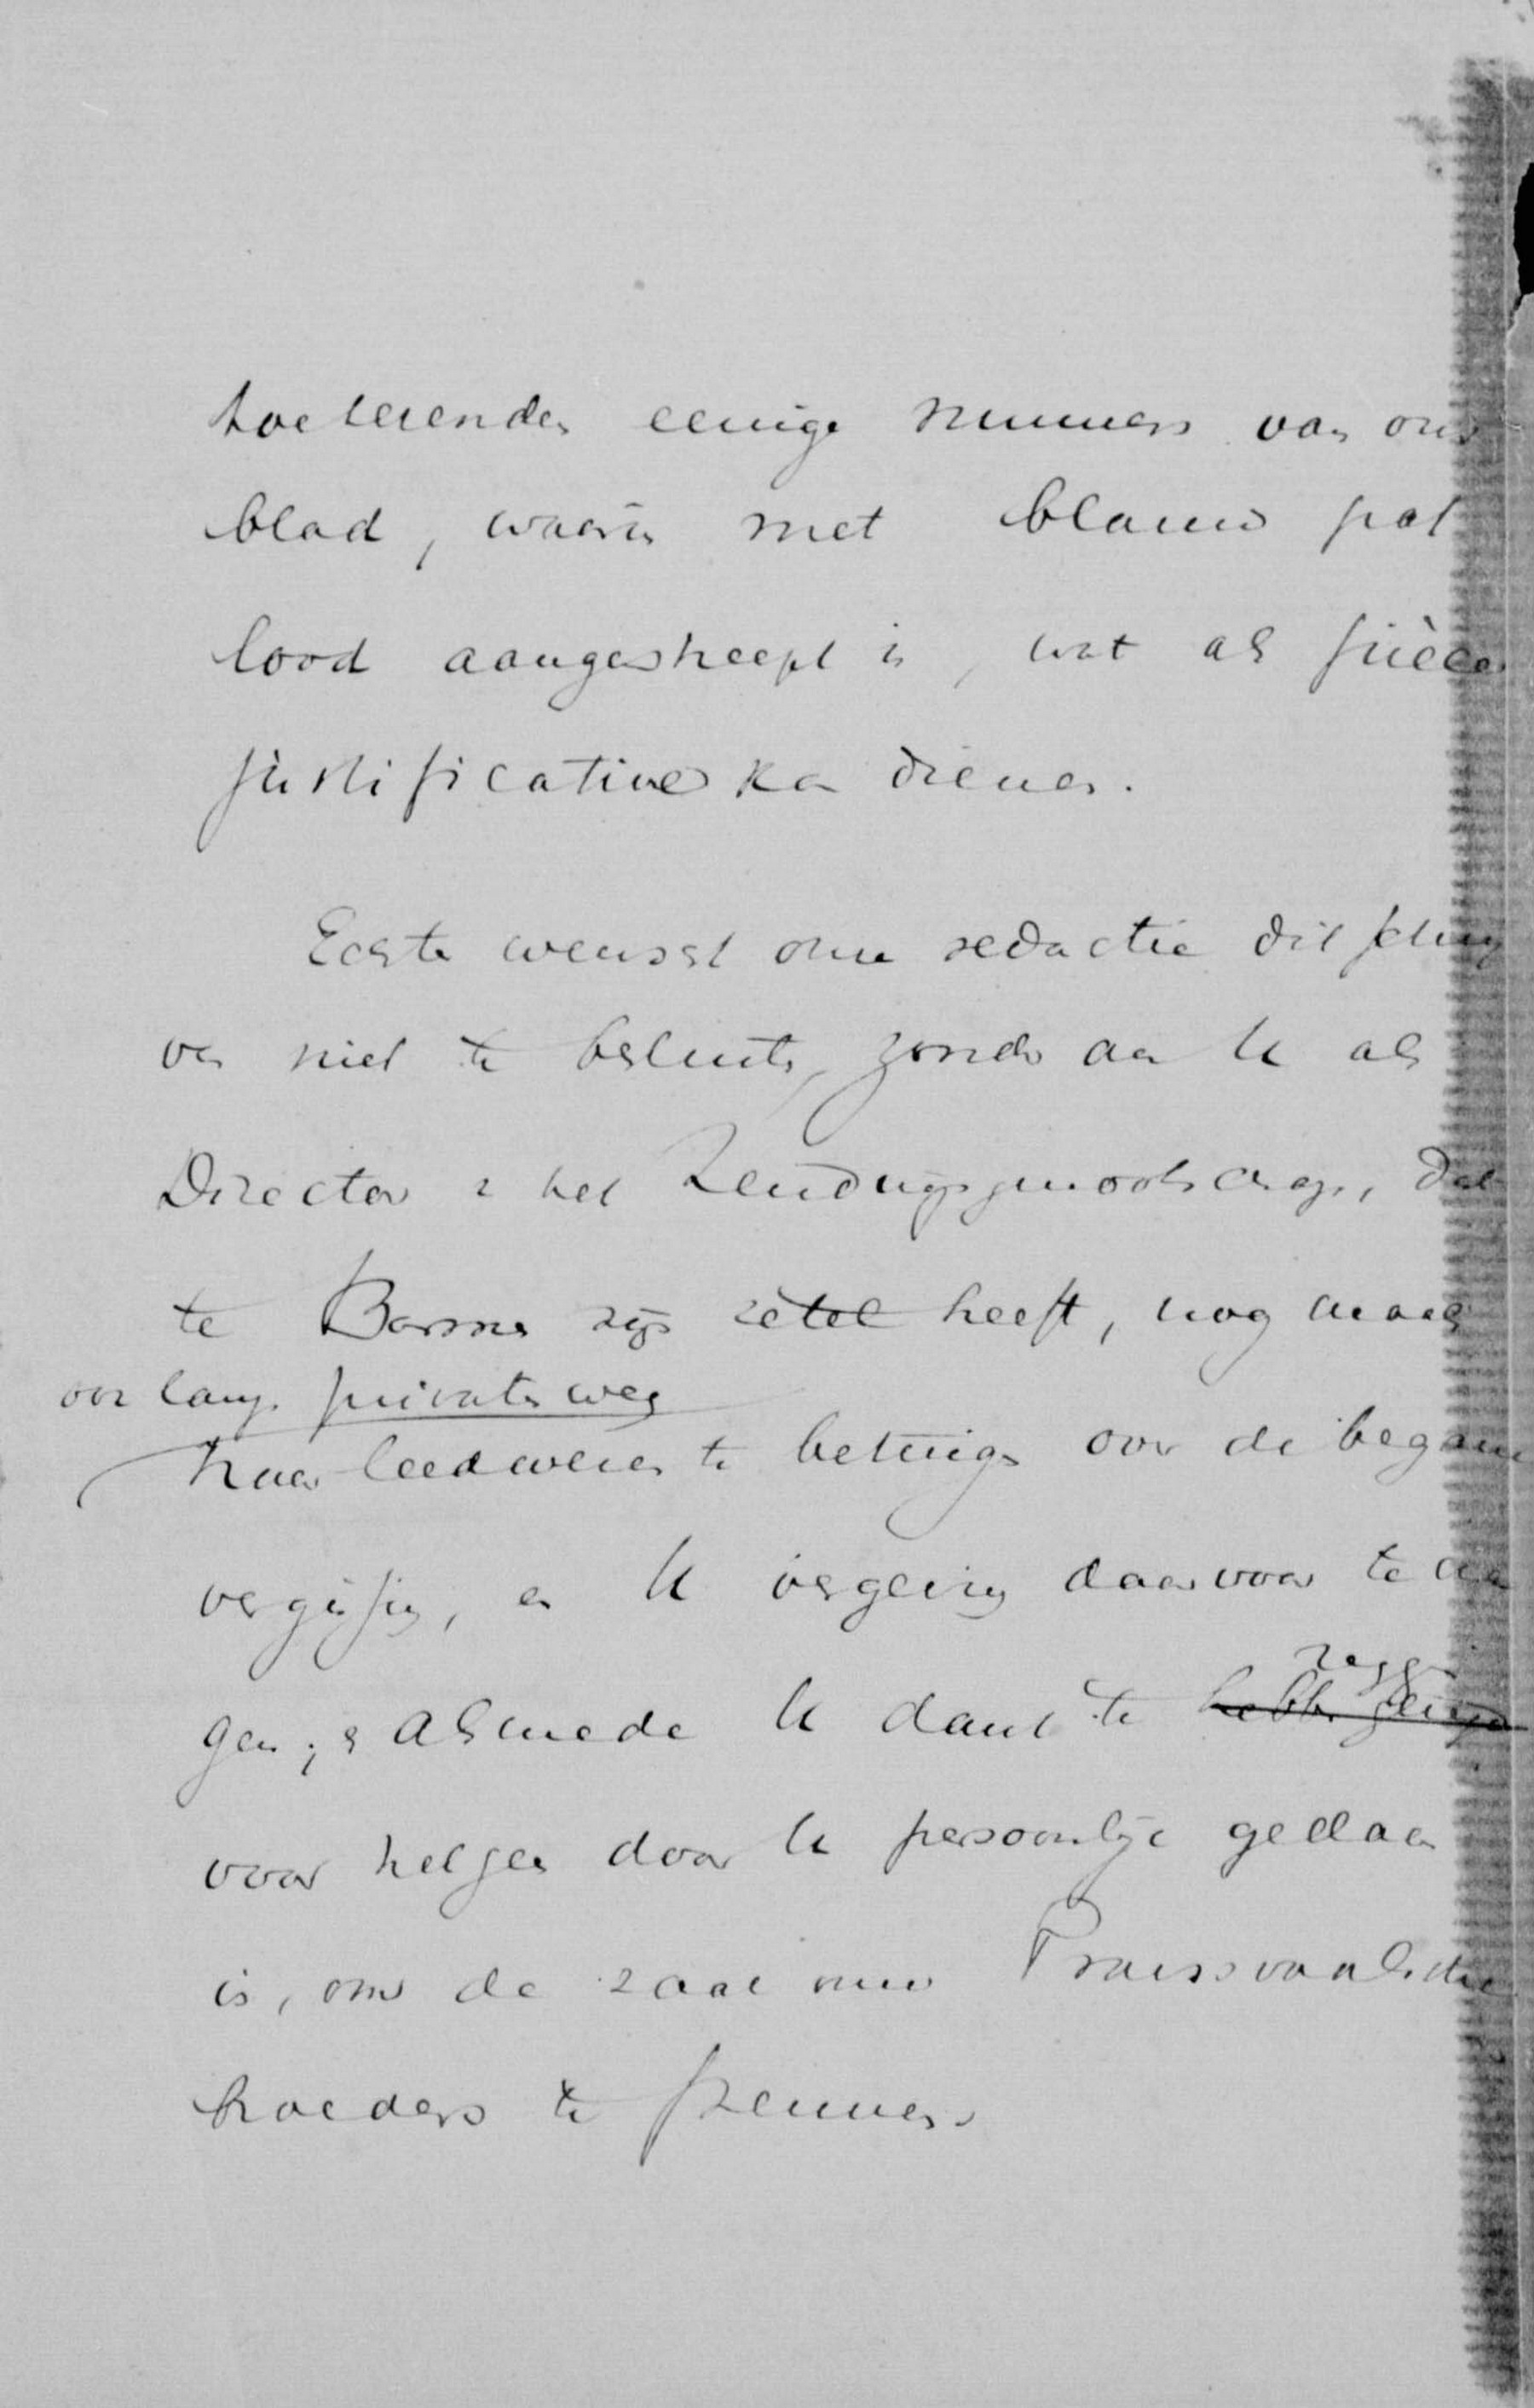 toekenenden eenige nummers van ons
blad, waarin met blauw pot
lood aangestreept is, wat als pièces
justificatives kan dienen.
Echter wenscht onze redactie dit schrij
ven niet te besluiten, zonder aan U als
Director v het Zendingsgenootschap, dat
te Barmen zijn zetel heeft, nog maals
ook langs privaten weg
haar leedwezen te betuigen over de begane
vergissing, en U vergeving daarvoor te vra
gen; & alsmede U dank te hebben zeggen
zeggen
voor hetgeen door U persoonlijk gedaan
is, om de zaak onzer Transvaalsche
broeders te steunen.